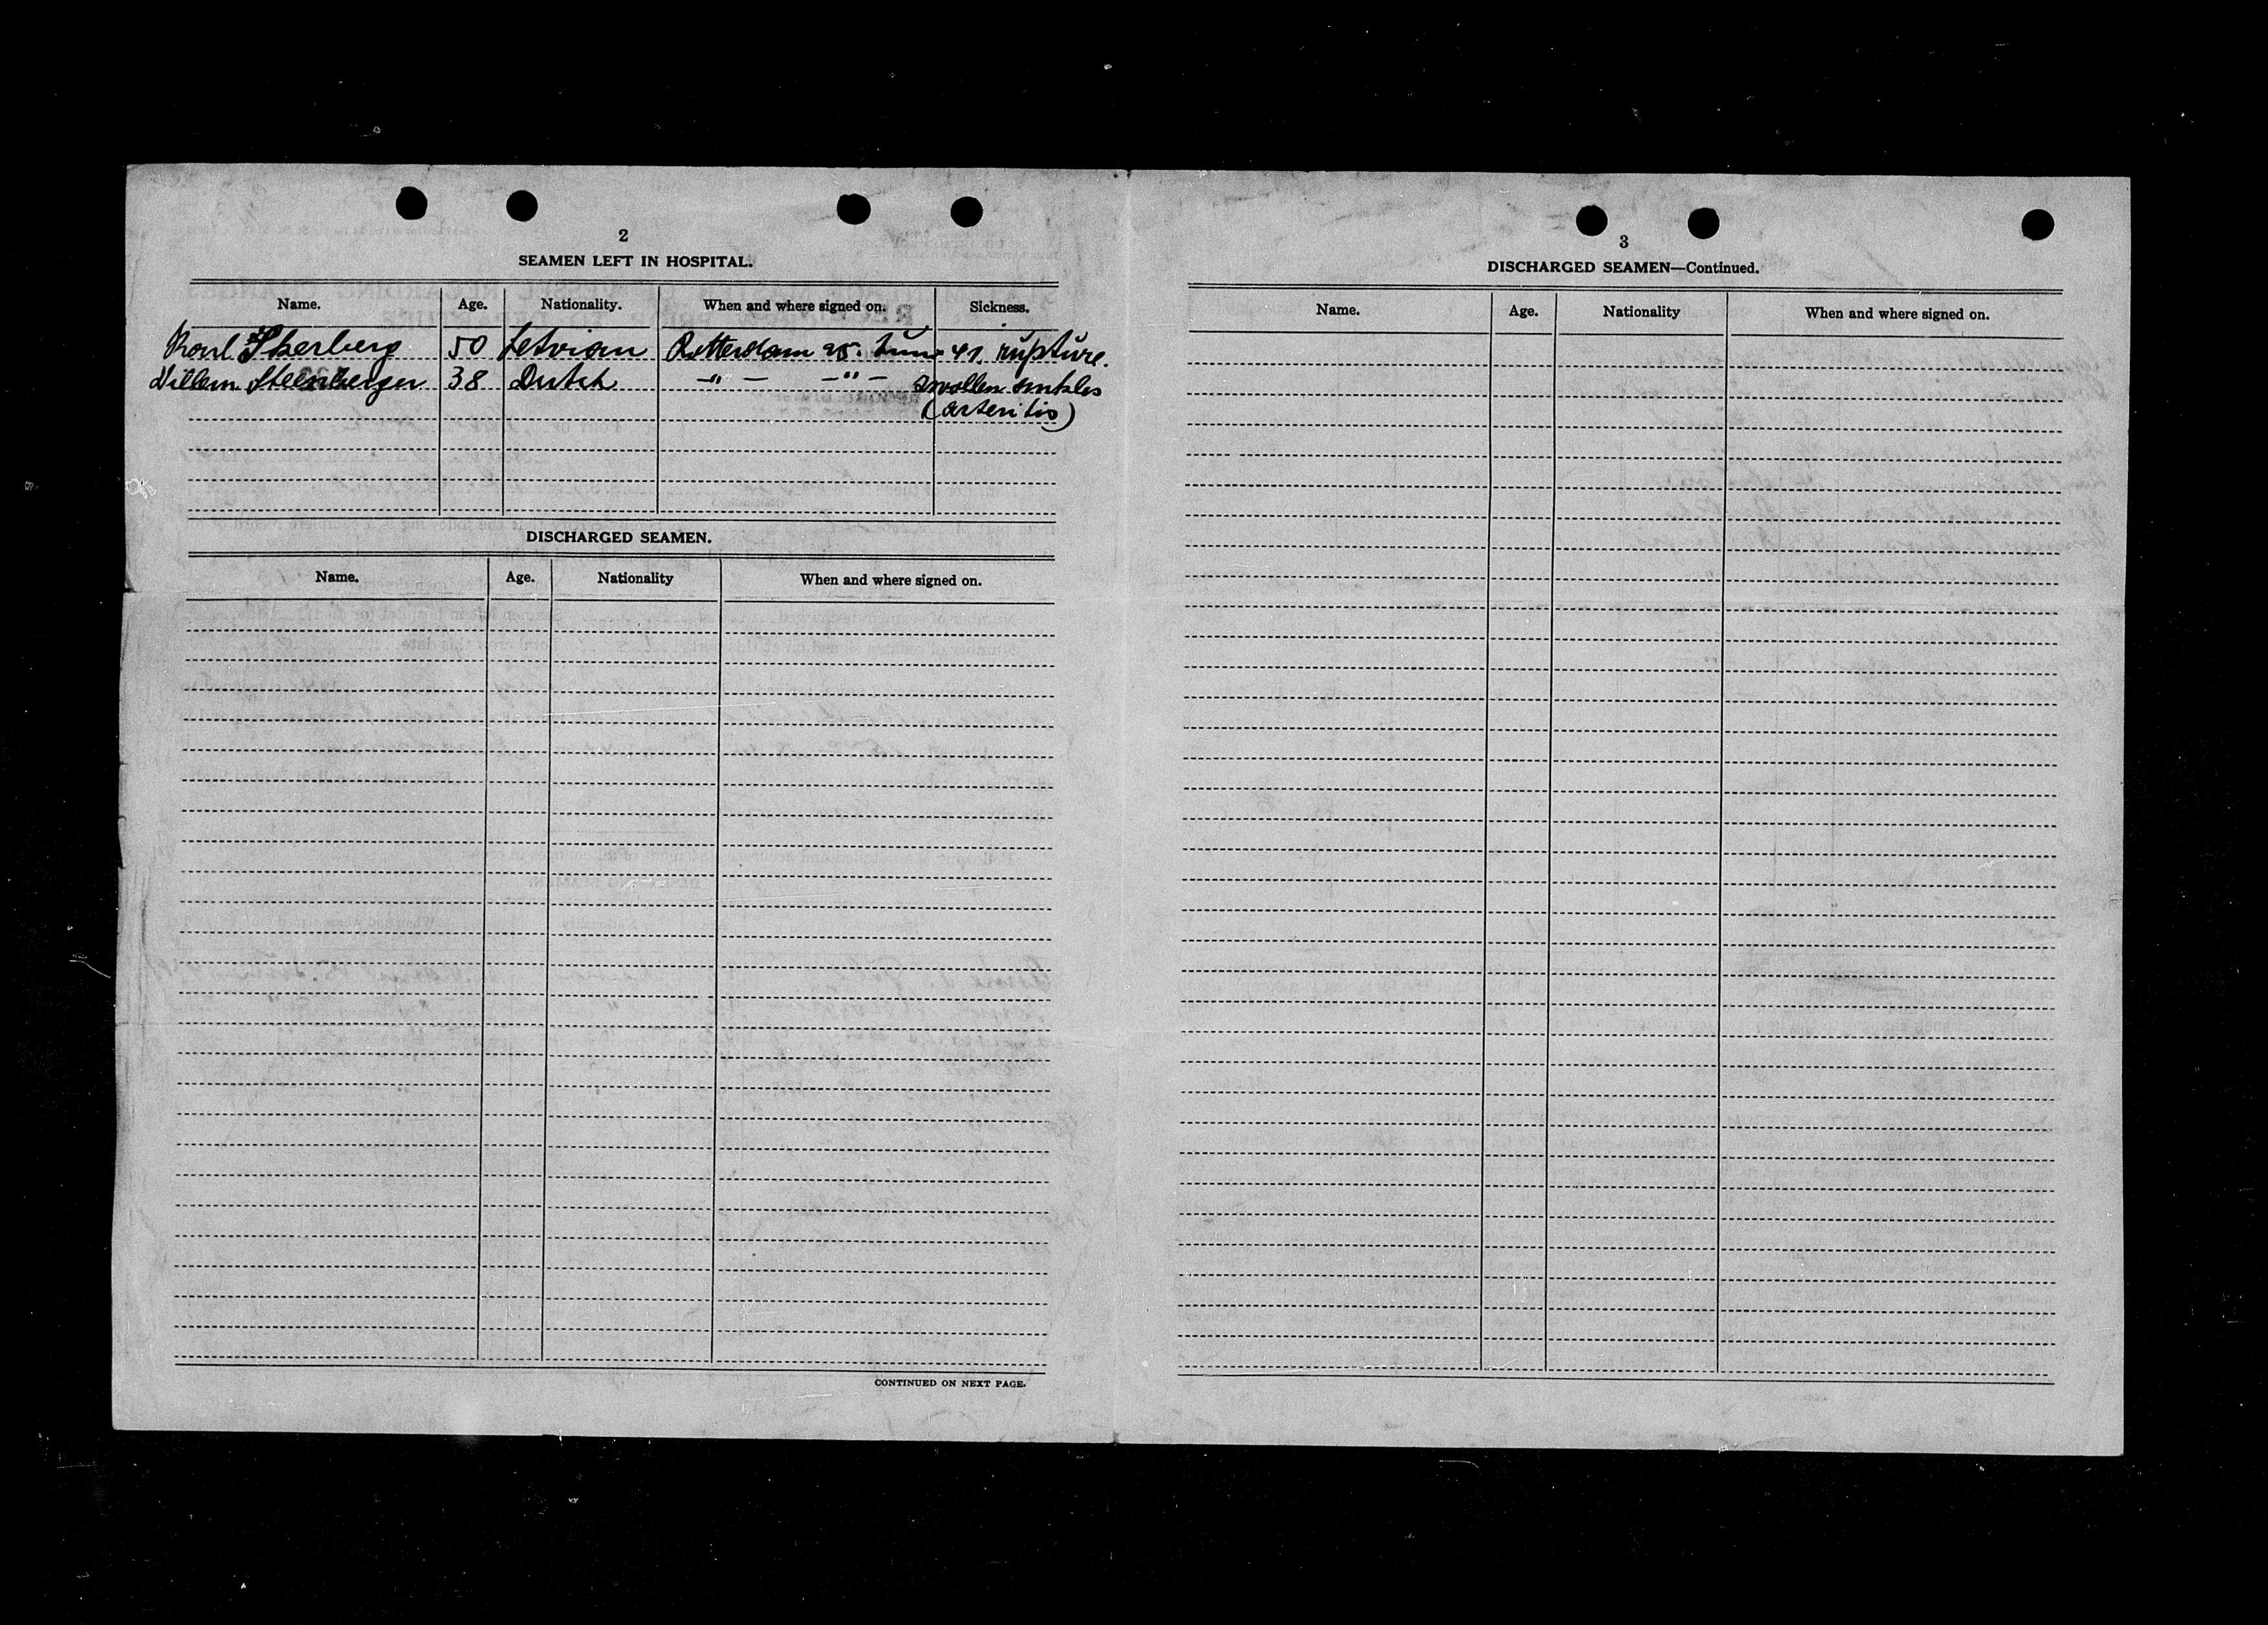 2
SEAMEN LEFT IN HOSPITAL.
Name. Age. Nationality. When and where signed on. Sickness.
Karl 50 Letvian Rotterdam 25. June 41. rupture.
Willem Steenberger 38 Dutch —"— —"— swollen ankles
(arteritis)
DISCHARGED SEAMEN.
Name. Age. Nationality When and where signed on.
CONTINUED ON NEXT PAGE.
3
DISCHARGED SEAMEN—Continued.
Name. Age. Nationality When and where signed on.